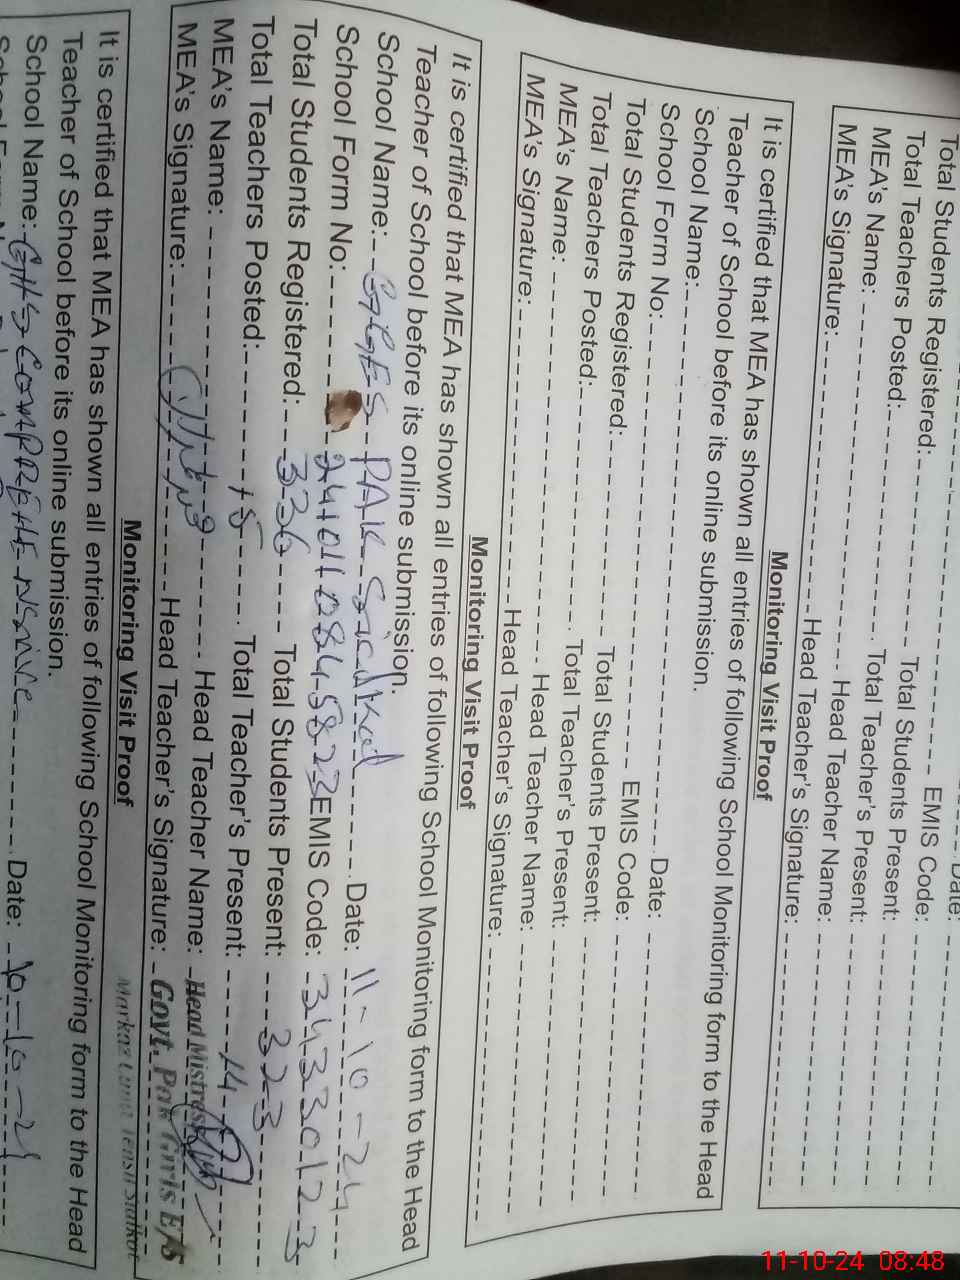 Date:
Total Students Registered: EMIS Code:
Total Teachers Posted: Total Students Present:
MEA's Name: Total Teacher's Present:
MEA's Signature: Head Teacher Name:
Head Teacher's Signature:
Monitoring Visit Proof
It is certified that MEA has shown all entries of following School Monitoring form to the Head
Teacher of School before its online submission.
School Name: Date:
School Form No: EMIS Code:
Total Students Registered: Total Students Present:
Total Teachers Posted: Total Teacher's Present:
MEA's Name: Head Teacher Name:
MEA's Signature: Head Teacher's Signature:
Monitoring Visit Proof
It is certified that MEA has shown all entries of following School Monitoring form to the Head
Teacher of School before its online submission.
School Name: GGES PAK Sialkot Date: 11-10-24
School Form No: EMIS Code: 34330123
Total Students Registered: 336 Total Students Present: 323
Total Teachers Posted: 15 Total Teacher's Present: 14
MEA's Name: Head Teacher Name: Head Mistress
MEA's Signature: Head Teacher's Signature: Govt. Pak Girls E/S
Monitoring Visit Proof
It is certified that MEA has shown all entries of following School Monitoring form to the Head
Teacher of School before its online submission.
School Name: GHS COMPREHENSIVE Date: 10-10-24
11-10-24 08:48